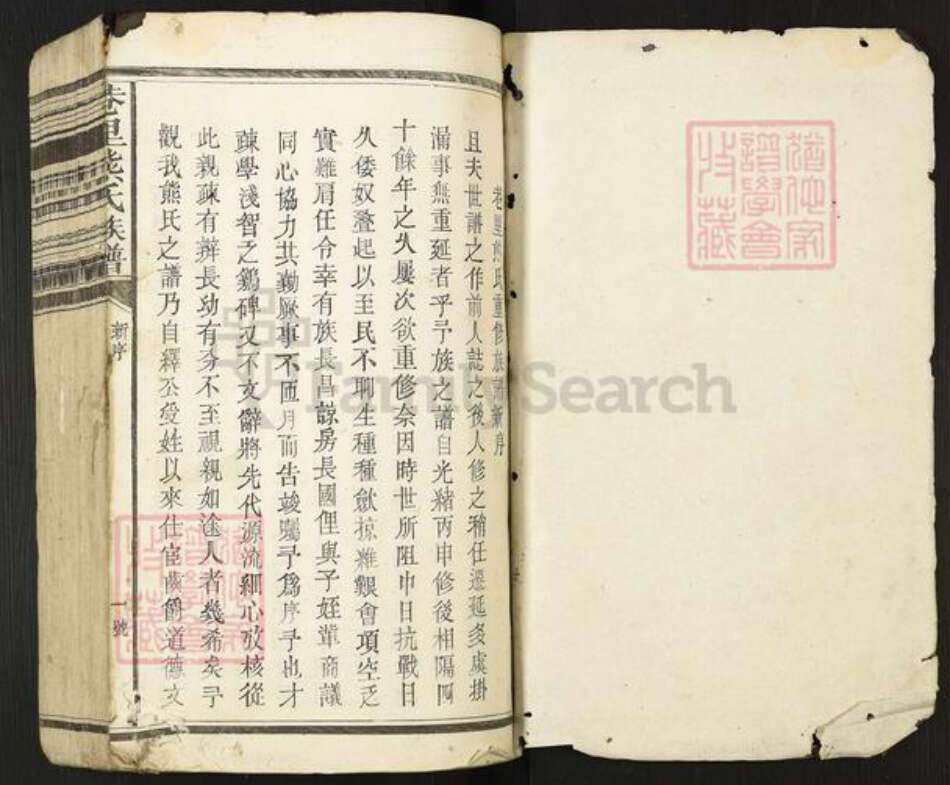 巷里熊氏重修族譜新序
且夫世譜之作前人誌之後人修之稍任遷延多虞掛
漏事無重延者乎予族之譜自光緒丙申修後相隔四
十餘年之久屢次欲重修奈因時世所阻中日抗戰日
久倭奴疊起以至民不聊生種種歛掠艱難會項空乏
實難肩任今幸有族長昌諒房長國俚與子姪輩商議
同心協力共勷厥事不匝月而告竣囑予為序予也才
疎學淺智乏鷄碑又不文辭將先代源流細心攷核從
此親疎有辨長幼有分不至視親如途人者幾希矣予
觀我熊氏之譜乃自釋公受姓以來仕宦蔭爵道德文
巷里熊氏族譜
新序
一號
猶他家譜學會收藏
猶他家譜學會收藏
FamilySearch